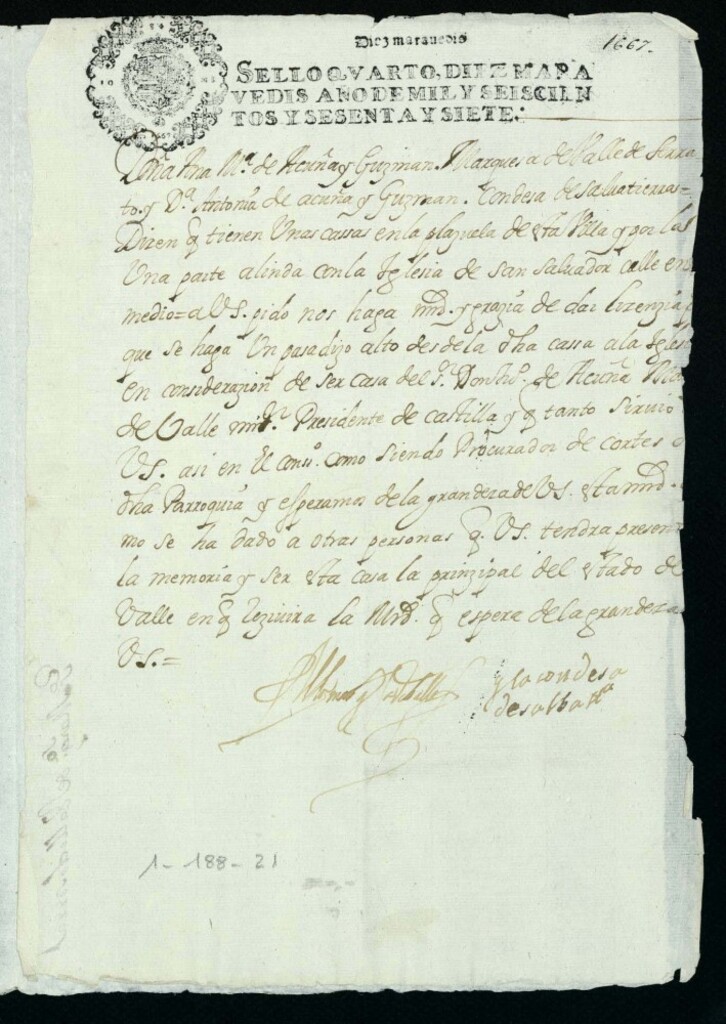 Diez maravedis
1667.
SELLO QVARTO, DIEZ MARA
VEDIS AÑO DE MIL Y SEISCIEN
TOS Y SESENTA Y SIETE.
Doña Ana Mª. de Acuña y Guzman. Marquesa del Valle de Serra
to. y Dª. Antonia de acuña y Guzman. Condesa de salvatierra=
Dizen q tienen Unas cassas en la plazuela de esta Villa y por la
Una parte alinda con la Iglesia de san salvador calle en
medio= a VS. pido nos haga mrd. y grazia de dar lizenzia
que se haga Un pasadizo alto desde la dha cassa a la Igles
en considerazion de ser casa del sr. Don de Acuña
de Valle Presidente de castilla y q tanto sirvio
VS. asi en el conso. como siendo Procurador de cortes
dha Parroquia y esperamos de la grandeza de VS. esta mrd.
mo se ha dado a otras personas q. VS. tendra presen
la memoria y ser esta casa la prinzipal del estado de
Valle en q rezivira la Mrd. q espera de la grandeza
VS.=
y la condesa
de salbatra
1-188-21